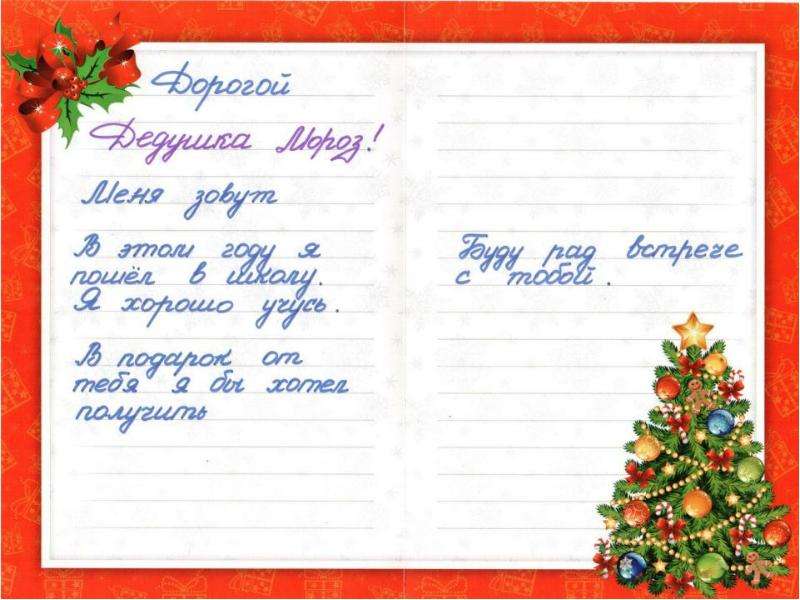 Дорогой
Дедушка Мороз!
Меня зовут
В этом году я
пошёл в школу.
Я хорошо учусь.
В подарок от
тебя я бы хотел
получить
Буду рад встрече
с тобой.